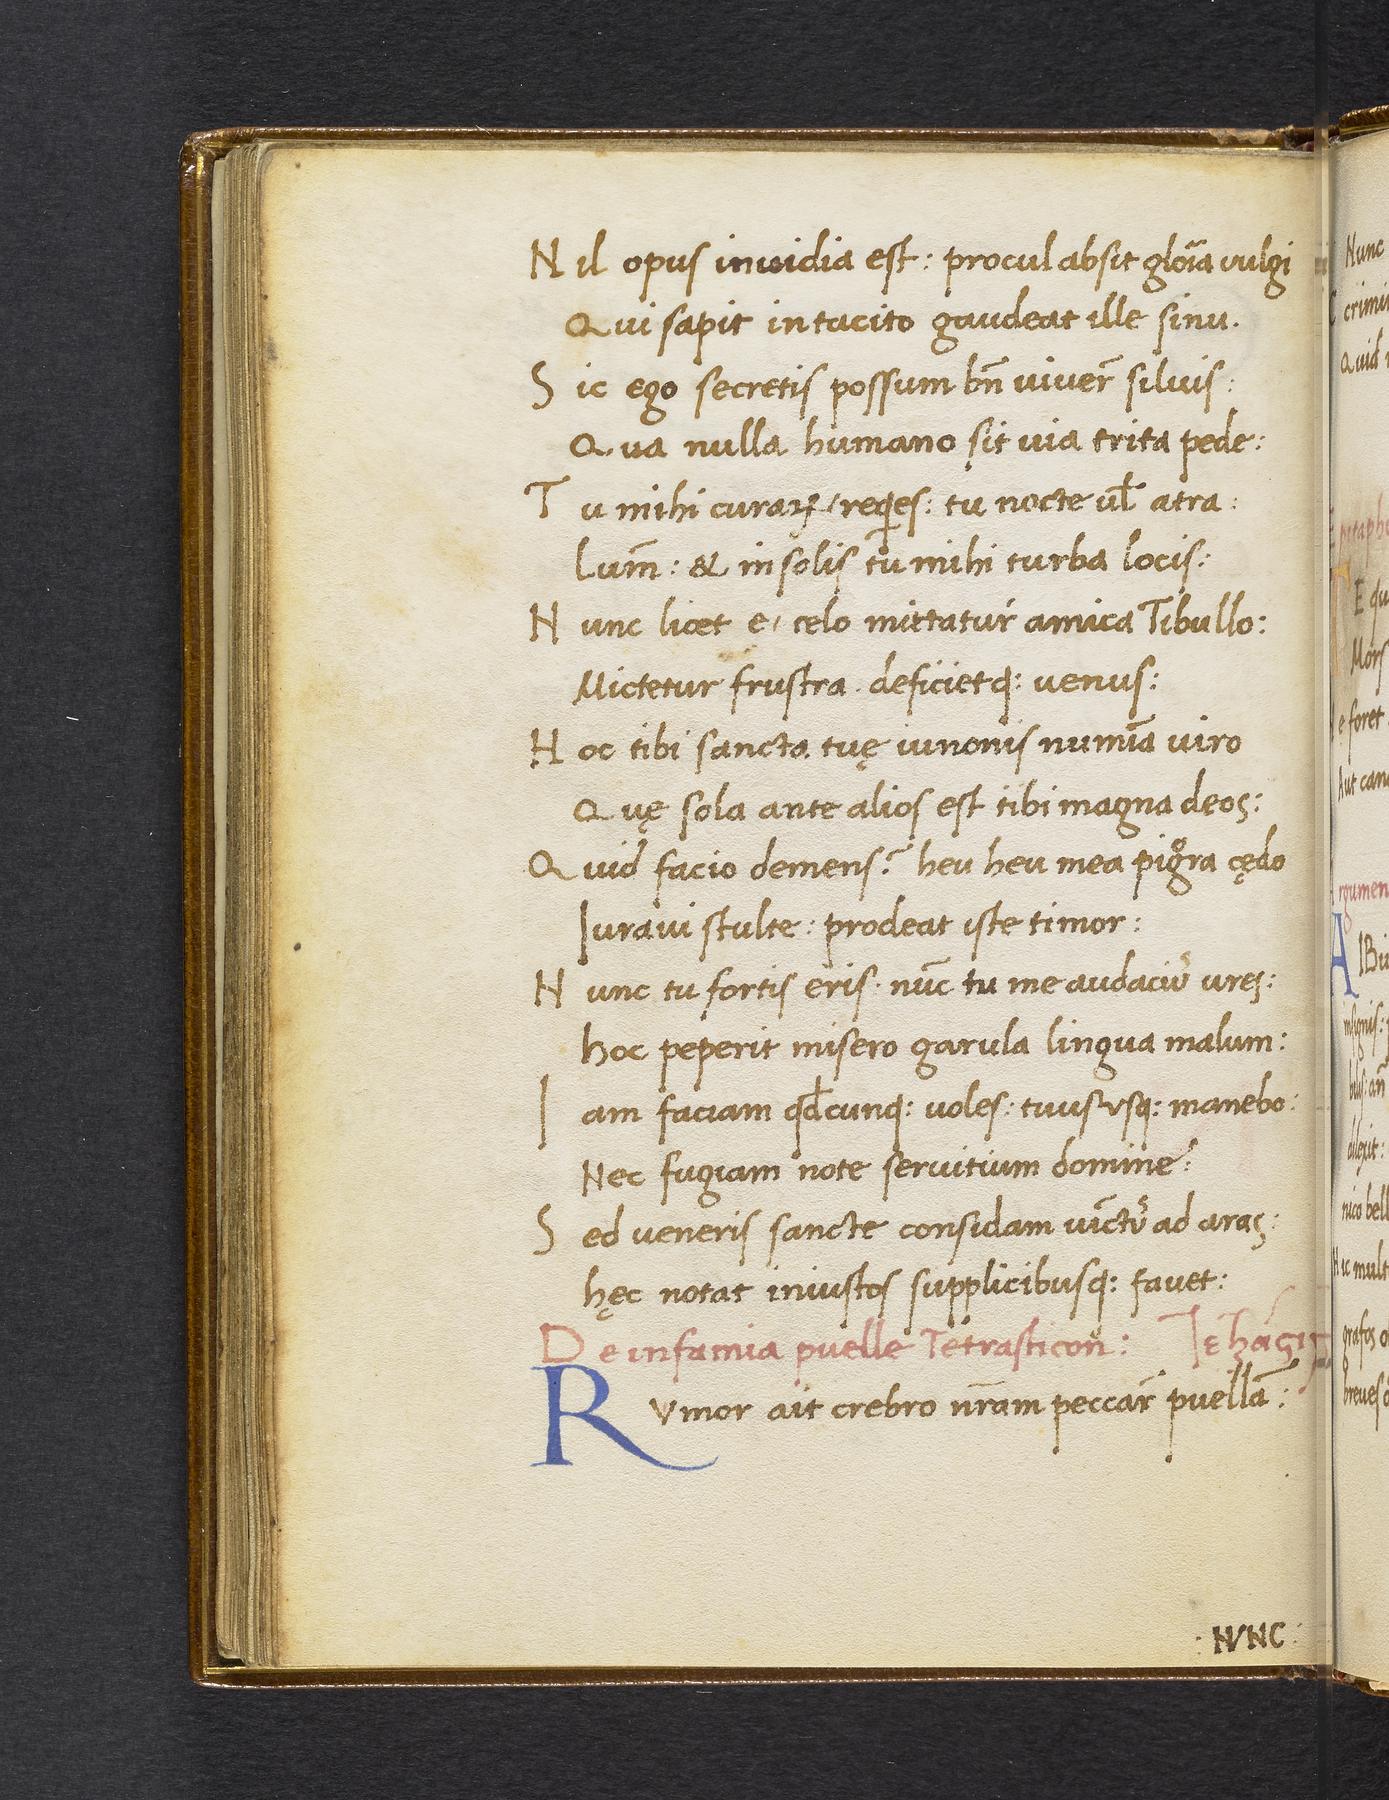 Nil opus inuidia est: procul absit gloĩa vulgi
Qui sapit in tacito gaudeat ille sinu.
Sic ego secretis possum bñ uiuer̃ siluis:
Qua nulla humano sit uia trita pede:
Tu mihi curaꝝ reqes: tu nocte ul̃ atra:
Lum̃: & in solis tu mihi turba locis:
Nunc licet e celo mittatur amica Tibullo:
Mictetur frustra. deficietq: uenus:
Hoc tibi sancta tuę iunonis numĩa uiro
Quę sola ante alios est tibi magna deos:
Quid facio demens? heu heu mea pigͦra cędo
Iuraui stulte: prodeat iste timor:
Nunc tu fortis eris. nũc tu me audaciꝰ ures:
hoc peperit misero garula lingua malum:
Iam faciam qd̃cunq: uoles: tuus vsq: manebo:
Nec fugiam note seruitium domine:
Sed ueneris sancte considam uĩctꝰ ad aras:
hęc notat iniustos supplicibusq: fauet:
De infamia puelle Tetrasticon:
RVmor ait crebro nr̃am peccar̃ puellã:
: NVNC:
Nunc
crimi
Quid
E qu
Mors
e foret
Aut can
rgumen
A lBi
insignis:
nico bell
Hic mult
grafos
breues